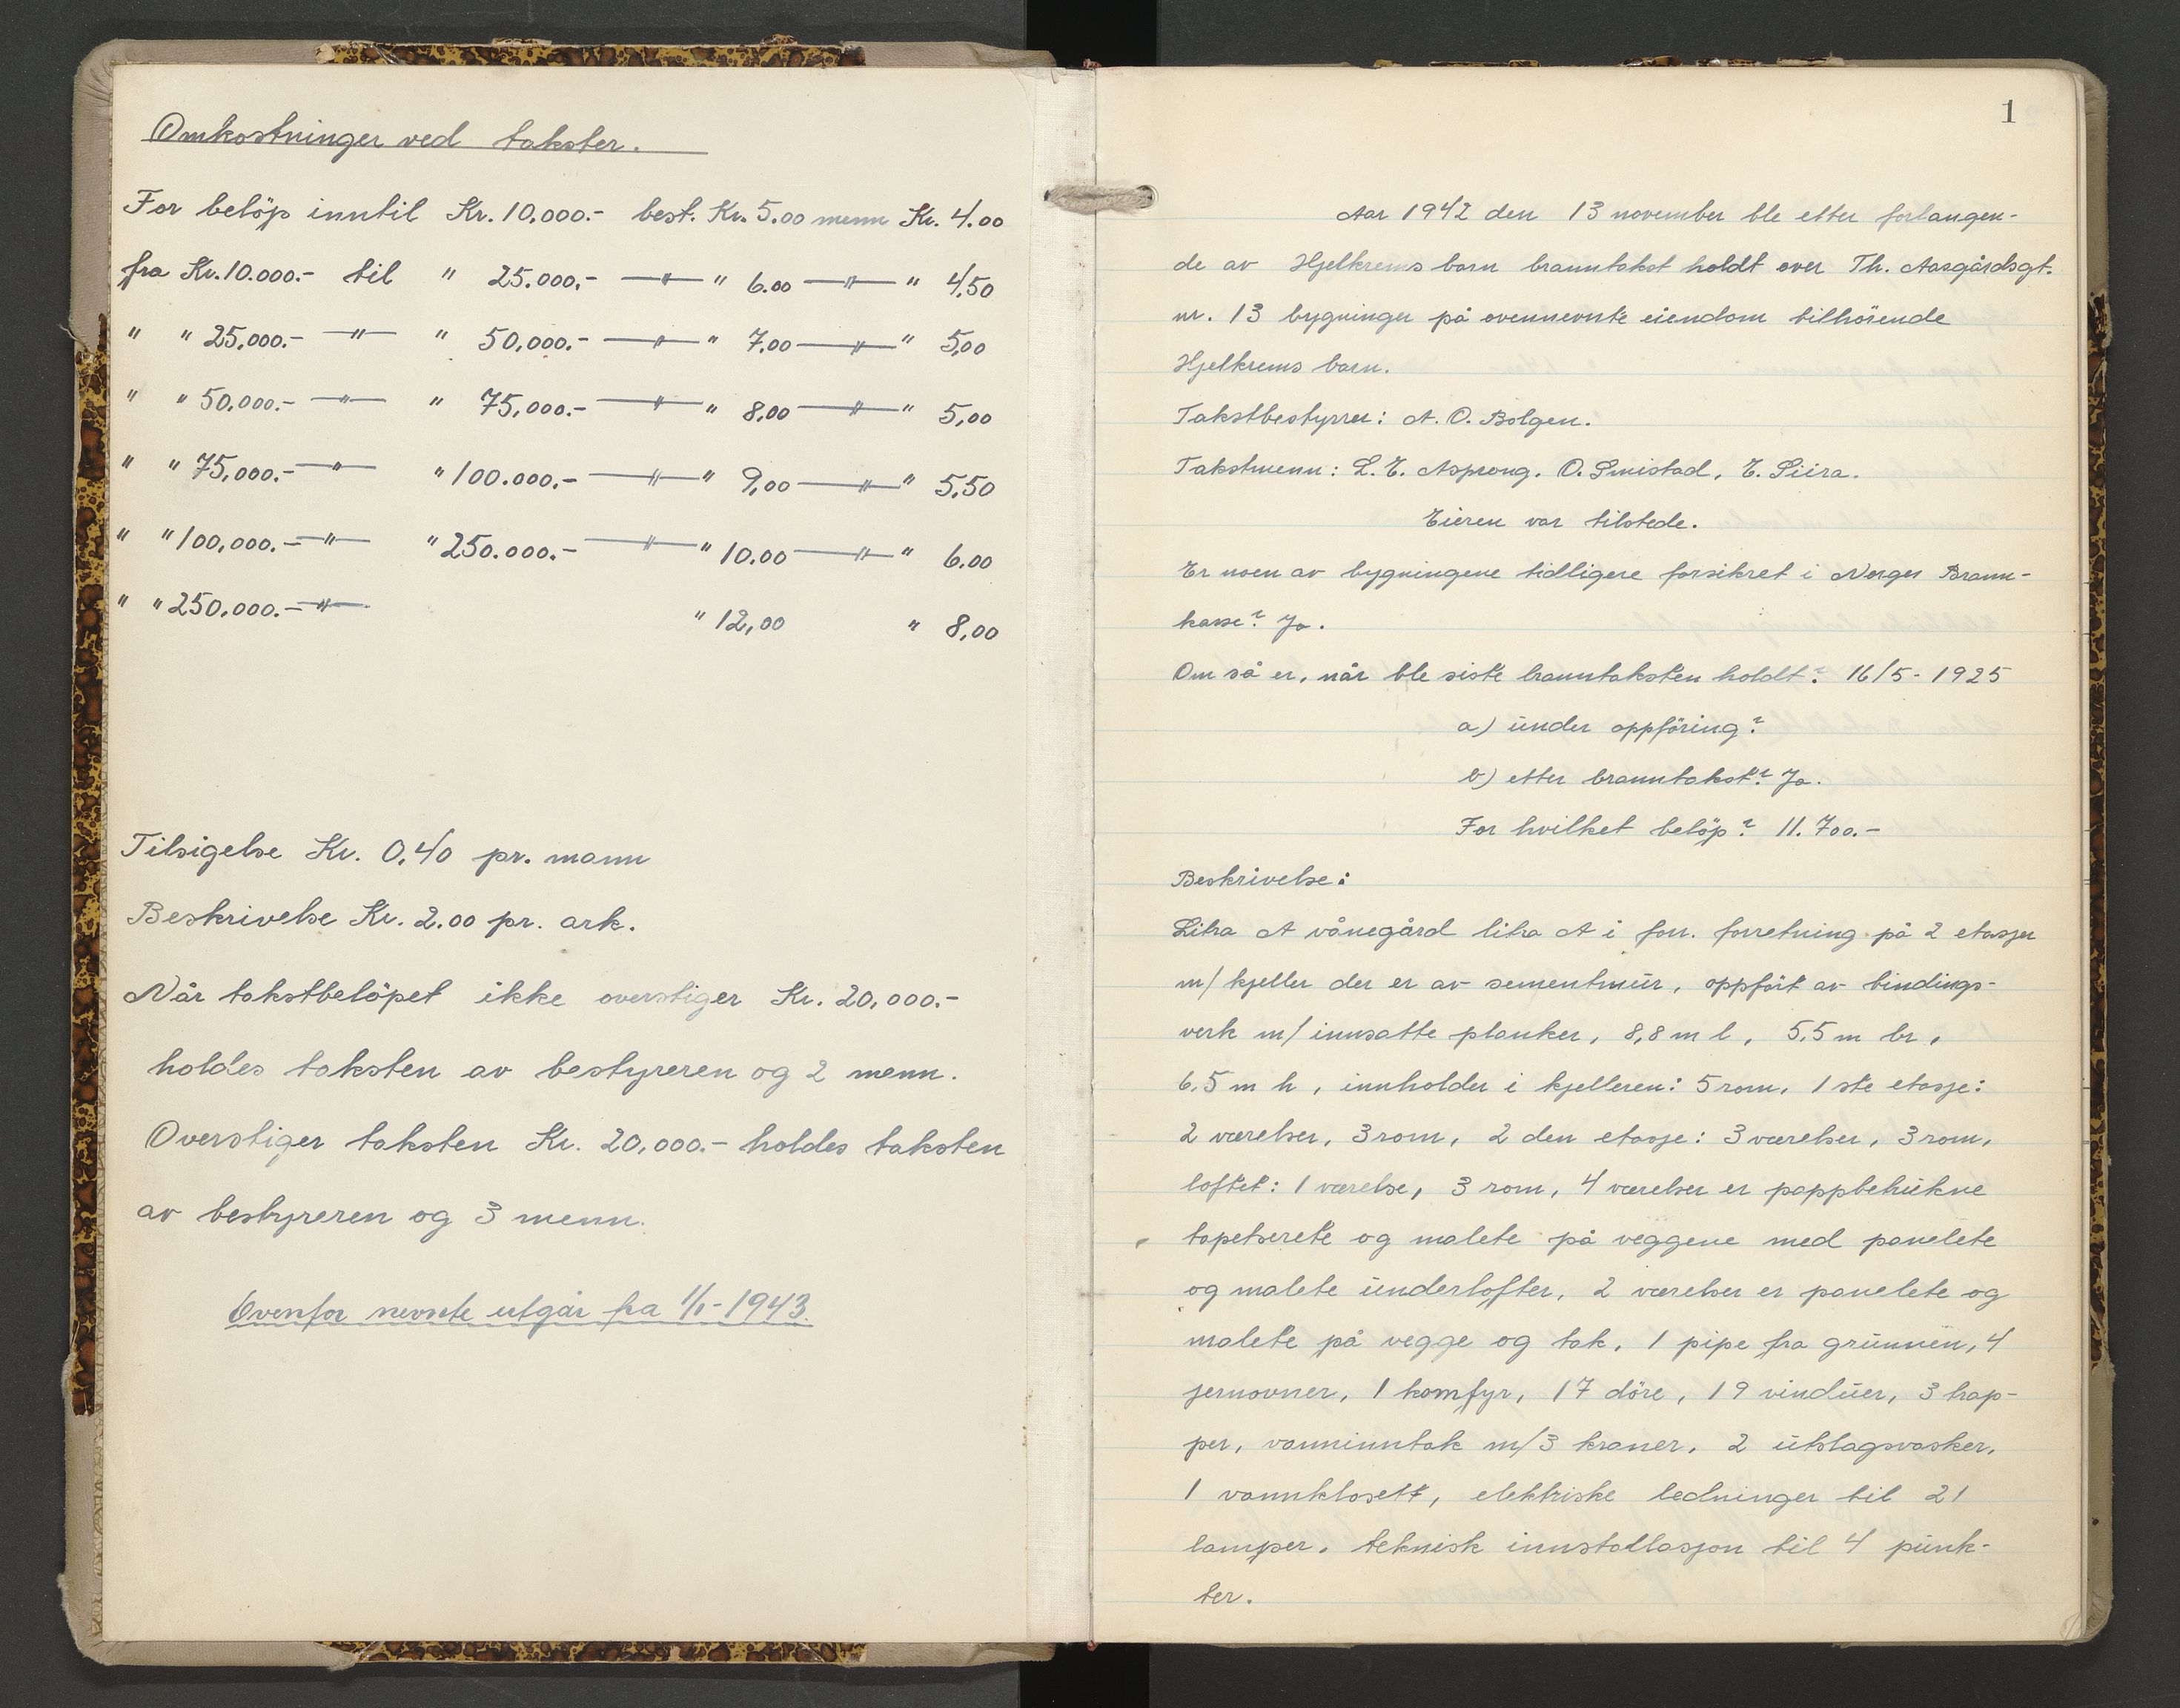 Omkostninger ved takster.
For beløp inntil Kr. 10,000.- best. Kr. 5.00 menn Kr. 4.00
fra Kr. 10.000.- til " 25.000.- —"— " 6.00 —"— " 4,50
" " 25,000.- —"— " 50,000.- —"— " 7,00 —"— " 5,00
" " 50,000.- —"— " 75,000.- —"— " 8,00 —"— " 5,00
" " 75,000.- —"— " 100.000.- —"— " 9,00 —"— " 5,50
" " 100,000.- —"— " 250.000.- —"— " 10.00 —"— " 6.00
" " 250,000.- —"— " 12,00 " 8,00
Tilsigelse Kr. 0,40 pr. mann
Beskrivelse Kr. 2.00 pr. ark.
Når takstbelöpet ikke overstiger Kr. 20,000.-
holdes taksten av bestyreren og 2 menn.
Overstiger taksten Kr. 20,000.- holdes taksten
av bestyreren og 3 menn.
Ovenfor nevnte utgår fra 1/1-1943.
1
Aar 1942 den 13 november ble etter forlangen-
de av Hjelkrems barn branntakst holdt over Th. Aasgårdsgt.
nr. 13 bygninger på ovennevnte eiendom tilhörende
Hjelkrems barn.
Takstbestyrer: A. O. Bolgen.
Takstmenn: L. E. Asprong. O. Smistad, E. Siira.
Eieren var tilstede.
Er noen av bygningene tidligere forsikret i Norges Brann-
kasse? Ja.
Om så er, når ble siste branntaksten holdt? 16/5-1925
a) under oppföring?
b) etter branntakst? Ja.
For hvilket belöp? 11.700.-
Beskrivelse:
Litra A vånegård litra A i forr. forretning på 2 etasjer
m/ kjeller der er av sementmur, oppfört av bindings-
verk m/ innsatte planker, 8,8 m l, 5,5 m br,
6.5 m h, innholder i kjelleren: 5 rom, 1 ste etasje:
2 værelser, 3 rom, 2 den etasje: 3 værelser, 3 rom,
loftet: 1 værelse, 3 rom, 4 værelser er pappbetrukne
tapetserete og malete på veggene med panelete
og malete underlofter, 2 værelser er panelete og
malete på vegge og tak, 1 pipe fra grunnen, 4
jernovner, 1 komfyr, 17 döre, 19 vinduer, 3 trap-
per, vanninntak m/3 kraner, 2 utslagsvasker,
1 vannklosett, elektriske ledninger til 21
lamper, teknisk innstallasjon til 4 punk-
ter.